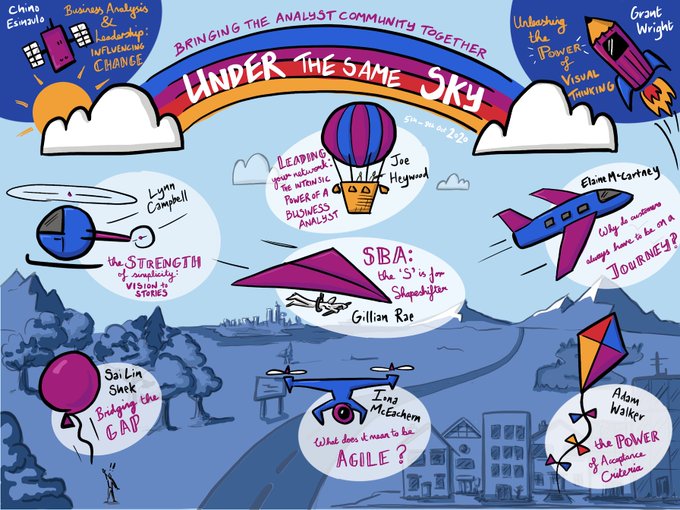 Chino
Esinaulo
Business Analysis
&
Leadership:
INFLUENCING
CHANGE
BRINGING THE ANALYST COMMUNITY TOGETHER
UNDER THE SAME SKY
5th - 9th Oct 2020
Unleashing
the
POWER
of
VISUAL
THINKING
Grant
Wright
Lynn
Campbell
the STRENGTH
of simplicity:
VISION to
STORIES
LEADING
your network:
THE INTRINSIC
POWER OF A
BUSINESS
ANALYST
Joe
Heywood
Elaine McCartney
Why do customers
always have to be on a
JOURNEY?
SBA:
the 'S' is for
Shapeshifter
Gillian Rae
Sai Lin
Shek
Bridging the
GAP
Iona
McEachern
What does it mean to be
AGILE?
Adam
Walker
the POWER
of Acceptance
Criteria